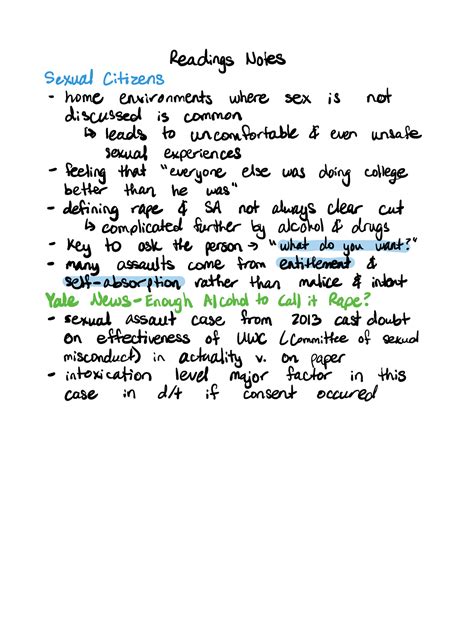 Readings Notes
Sexual Citizens
- home environments where sex is not
discussed is common
↳ leads to uncomfortable & even unsafe
sexual experiences
- feeling that "everyone else was doing college
better than he was"
- defining rape & SA not always clear cut
↳ complicated further by alcohol & drugs
- key to ask the person → "what do you want?"
- many assaults come from entitlement &
self-absorption rather than malice & intent
Yale News - Enough Alcohol to Call it Rape?
- sexual assault case from 2013 cast doubt
on effectiveness of UWC (Committee of sexual
misconduct) in actuality v. on paper
- intoxication level major factor in this
case in d/t if consent occured